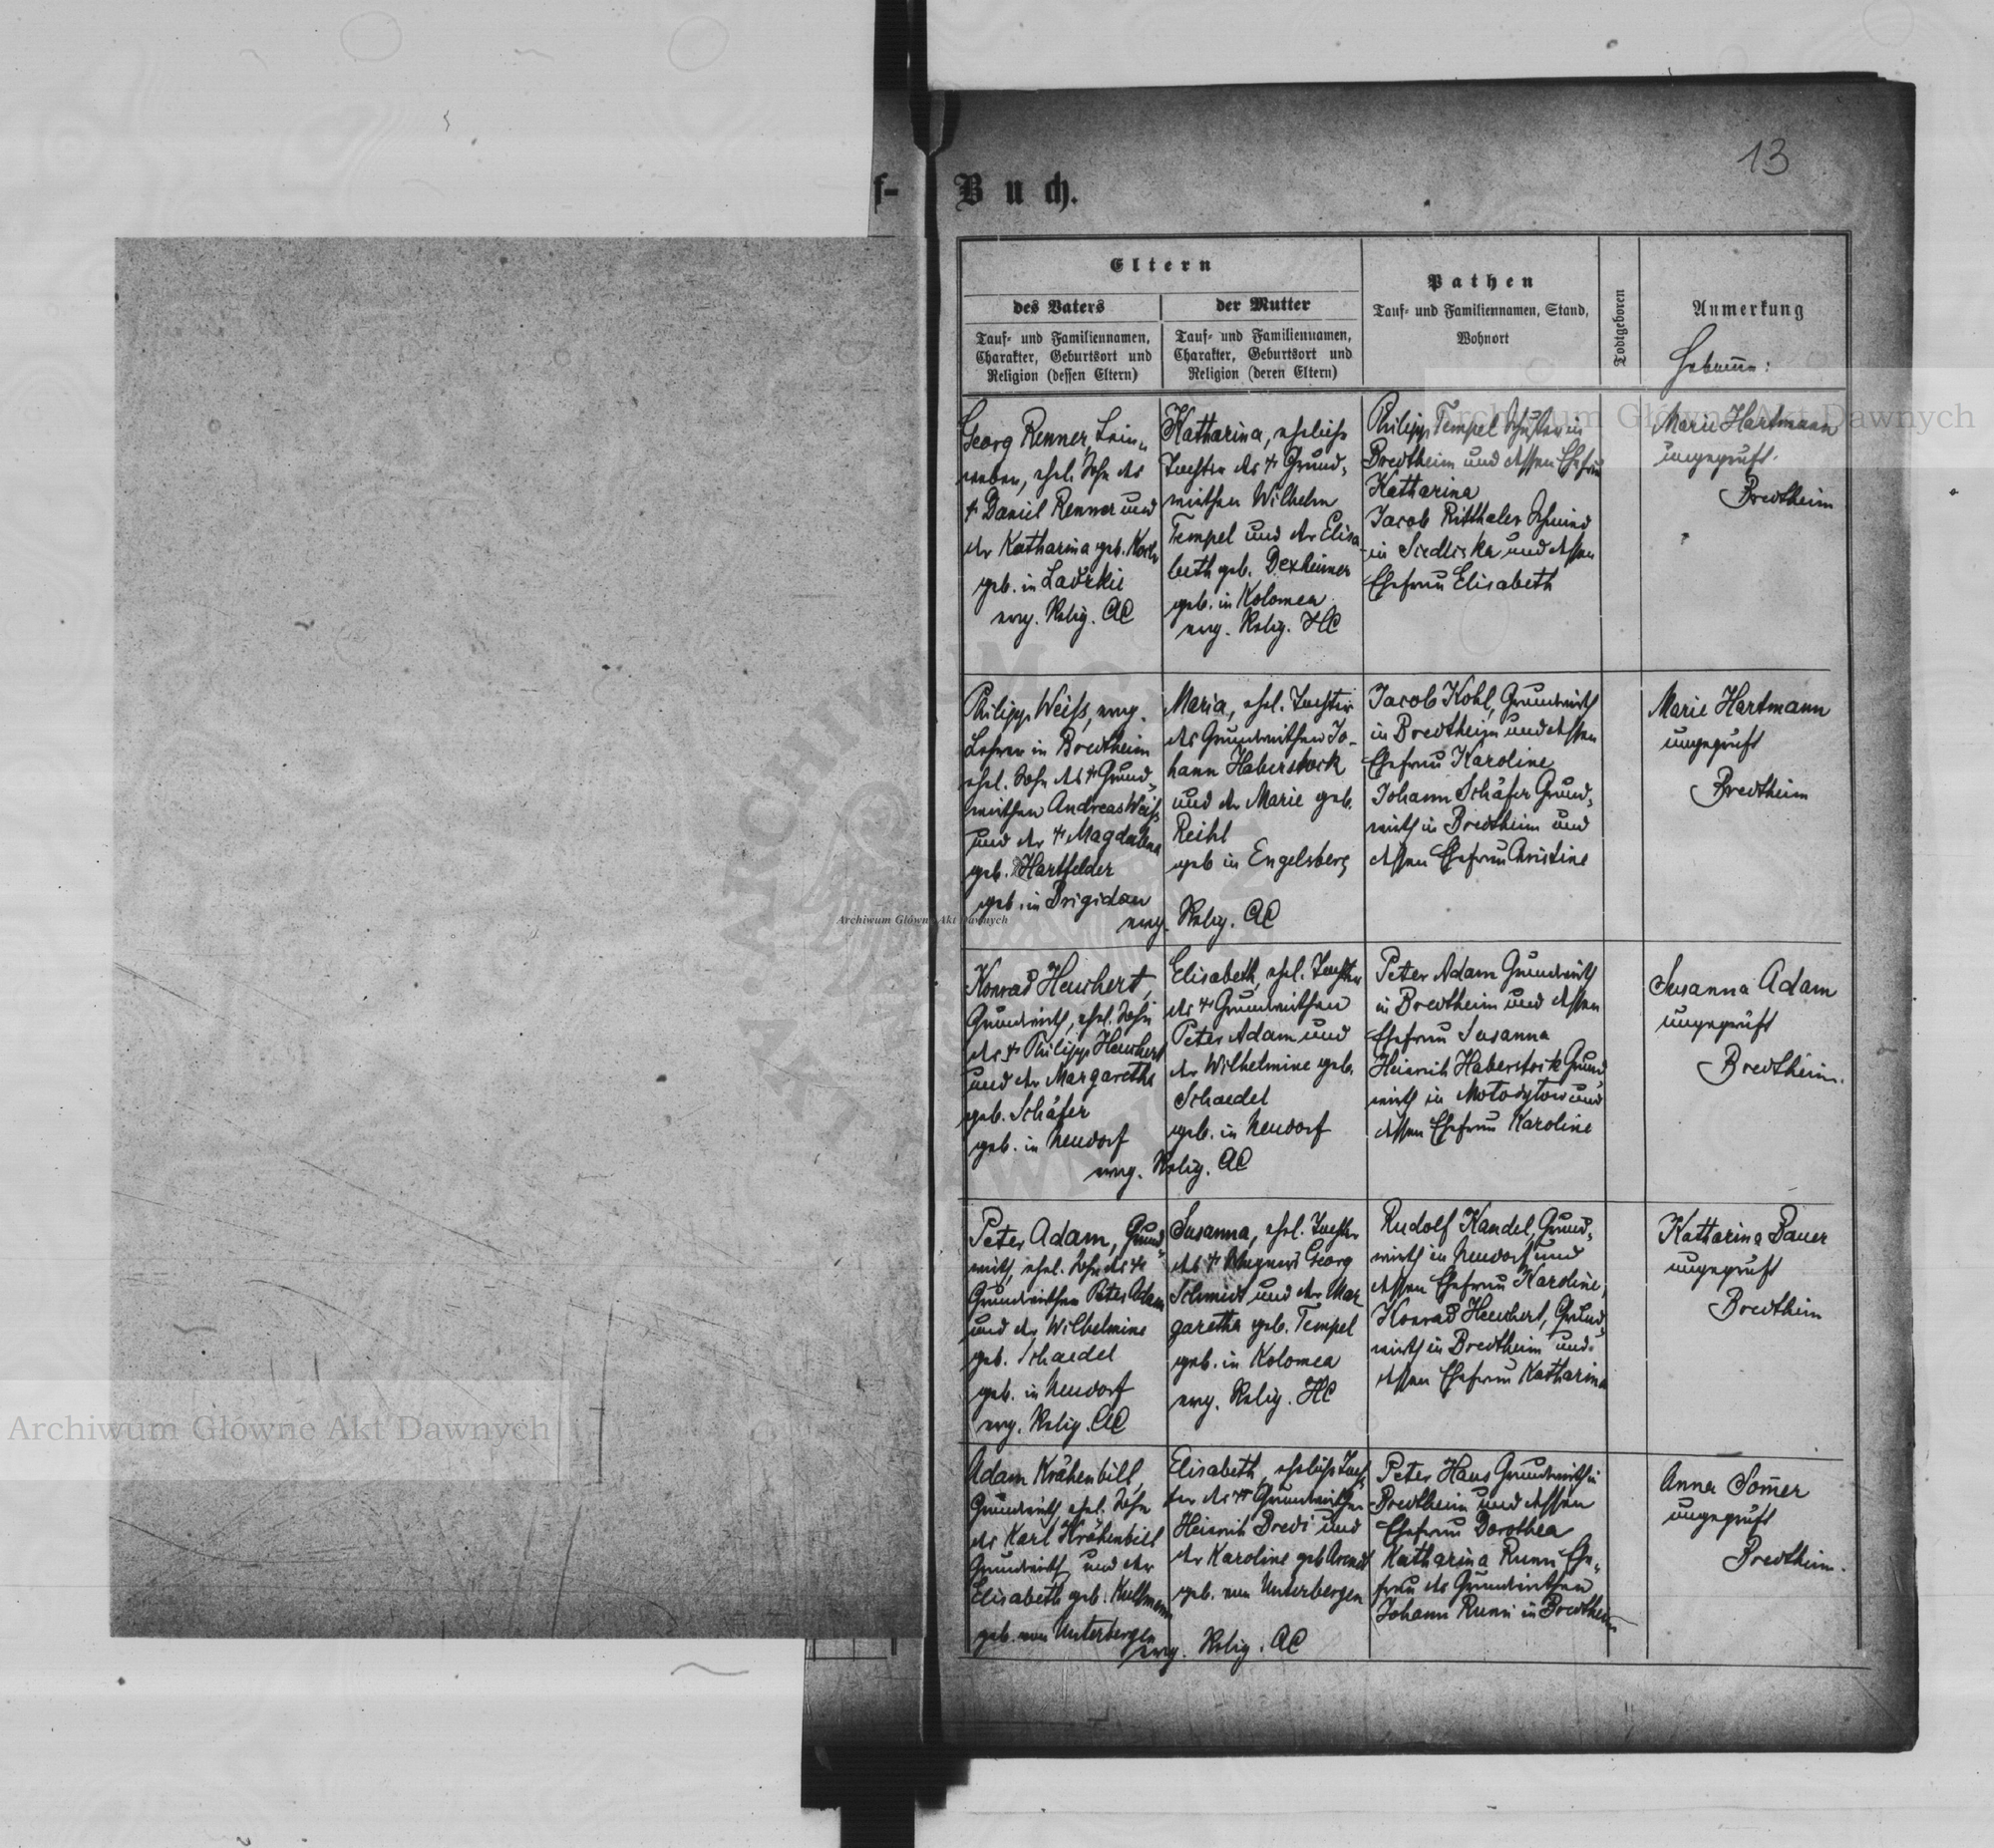 13
f- Buch.
Eltern
des Vaters
der Mutter
Tauf- und Familiennamen,
Charakter, Geburtsort und
Religion (dessen Eltern)
Tauf- und Familiennamen,
Charakter, Geburtsort und
Religion (deren Eltern)
Pathen
Tauf- und Familiennamen, Stand,
Wohnort
Todtgeboren
Anmerkung
Hebamme:
Georg Renner, Lein-
weber, ehel. Sohn des
† Daniel Renner und
der Katharina geb. Koch
geb. in
evg. Relig. AC
Katharina, eheliche
Tochter des † Grund-
wirthen Wilhelm
Tempel und der Elisa
beth geb. Dexheimer
geb. in Kolomea
evg. Relig. HC
Philipp Tempel Schuster in
Bredtheim und dessen Ehefrau
Katharina
Jacob Ritthaler Schmied
in Siedliska und dessen
Ehefrau Elisabeth
Marie Hartmann
ungeprüft.
Bredtheim
Philipp Weiss, evng.
Lehrer in Bredtheim
ehel. Sohn des † Grund-
wirthen Andreas Weiss
und der † Magdalena
geb. Hartfelder
geb. in Brigidau
Maria, ehel. Tochter
des Grundwirthen Jo-
hann Haberstock
und der Marie geb.
Reihl
geb in Engelsberg
evg. Relig. AC
Jacob Kohl, Grundwirth
in Bredtheim und dessen
Ehefrau Karoline
Johann Schäfer Grund-
wirth in Bredtheim und
dessen Ehefrau Christine
Marie Hartmann
ungeprüft
Bredtheim
Konrad Heuchert,
Grundwirth, ehel. Sohn
des † Philipp Heuchert
und der Margaretha
geb. Schäfer
geb. in Neudorf
Elisabeth, ehel. Tochter
des † Grundwirthen
Peter Adam und
der Wilhelmine geb.
Schaedel
geb. in Neudorf
evg. Relig. AC
Peter Adam Grundwirth
in Bredtheim und dessen
Ehefrau Susanna
Heinrich Haberstock Grund
wirth in und
dessen Ehefrau Karoline
Susanna Adam
ungeprüft
Bredtheim.
Peter Adam, Grund-
wirth, ehel. Sohn des †
Grundwirthen Peter Adam
und der Wilhelmine
geb. Schaedel
geb. in Neudorf
evg. Relig. AC
Susanna, ehel. Tochter
des † Wagners Georg
Schmidt und der Mar
garetha geb. Tempel
geb. in Kolomea
evg. Relig. HC
Rudolf Kandel, Grund-
wirth in Neudorf und
dessen Ehefrau Karoline,
Konrad Heuchert, Grund-
wirth in Bredtheim und
dessen Ehefrau Katharina
Katharina Bauer
ungeprüft
Bredtheim
Adam Krähenbill,
Grundwirth, ehel. Sohn
des Karl Krähenbill
Grundwirth und der
Elisabeth geb. Kullmann
geb. von Unterbergen
Elisabeth, eheliche Toch
ter des † Grundwirthen
Heinrich Bredi und
der Karoline geb
geb. von Unterbergen
evg. Relig. AC
Peter Haus Grundwirth in
Bredtheim und dessen
Ehefrau Dorothea
Katharina Rumi Ehe-
frau des Grundwirthen
Johann Rumi in Bredtheim
Anna Som̄er
ungeprüft
Bredtheim.
Archiwum Główne Akt Dawnych
Archiwum Główne Akt Dawnych
Archiwum Główne Akt Dawnych